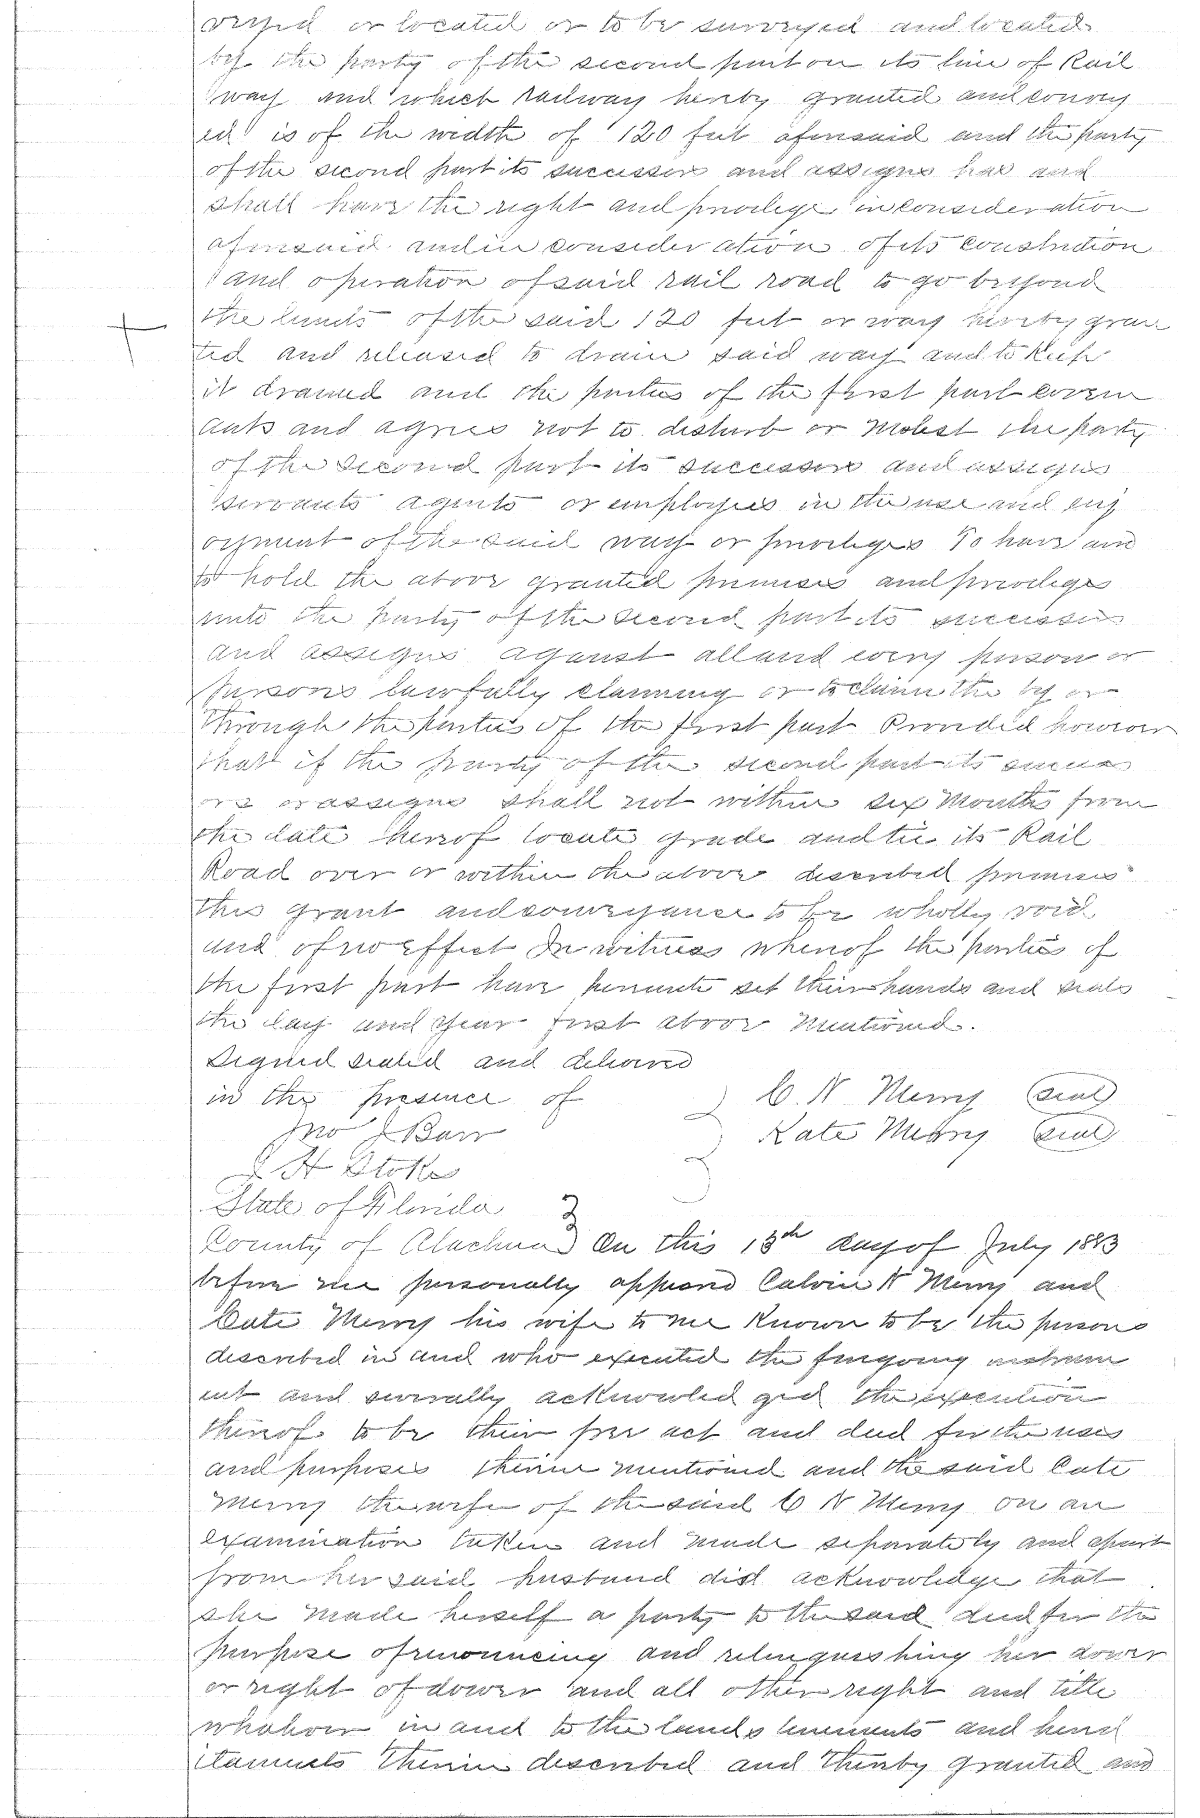 veyed or located or to be surveyed and located
by the party of the second part on its line of Rail
way and which railway hereby granted and convey
ed is of the width of 120 feet aforesaid and the party
of the second part its successors and assigns has and
shall have the right and privilege in consideration
aforesaid and in consideration of its construction
and operation of said rail road to go beyond
the limits of the said 120 feet or way hereby gran
ted and released to drain said way and to keep
it drained and the parties of the first part coven
ants and agrees not to disturb or molest the party
of the second part its successors and assigns
servants agents or employees in the use and enj
oyment of the said way or privileges To have and
to hold the above granted premises and privileges
unto the party of the second part its successors
and assigns against all and every person or
persons lawfully claiming or to claim the by or
through the parties of the first part Provided however
that if the party of the second part its success
ors or assigns shall not within six Months from
the date hereof locate grade and tie its Rail
Road over or within the above described premises
this grant and conveyance to be wholly void
and of no effect In witness whereof the parties of
the first part have hereunto set their hands and seals
the day and year first above Mentioned.
Signed sealed and delivered
in the presence of } C. N Merry (seal)
Jno J Barr } Kate Merry (seal)
H Stokes
State of Florida }
County of Alachua } On this 13th day of July 1883
before me personally appeared Calvin N Merry and
Cate Merry his wife to me Known to be the persons
described in and who executed the foregoing instrum
ent and severally acknowled ged the execution
thereof to be their free act and deed for the uses
and purposes therein mentioned and the said Cate
Merry the wife of the said C N Merry on an
examination taken and made separately and apart
from her said husband did acknowledge that
she made herself a party to the said deed for the
purpose of renouncing and relinquishing her dower
or right of dower and all other right and title
whatever in and to the lands tenements and hered
itaments therein described and thereby granted and